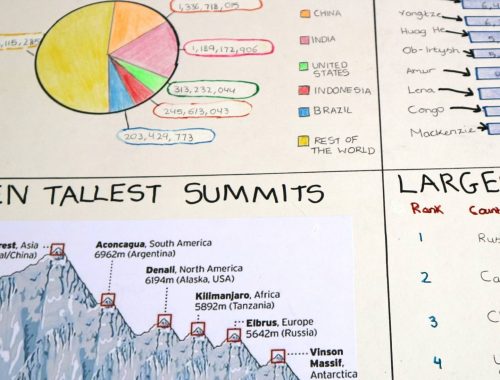 1,336,718,015
1,189,172,906
313,232,044
245,613,043
203,429,773
,115,285
CHINA
INDIA
UNITED
STATES
INDONESIA
BRAZIL
REST OF
THE WORLD
Yangtze
Huag He
Ob-Irtysh
Amur
Lena
Congo
Mackenzie
EN TALLEST SUMMITS
rest, Asia
al/China)
Aconcagua, South America
6962m (Argentina)
Denali, North America
6194m (Alaska, USA)
Kilimanjaro, Africa
5892m (Tanzania)
Elbrus, Europe
5642m (Russia)
Vinson
Massif,
Antarctica
LARGE
Rank Coun
1 Rus
2 Ca
3 C
4